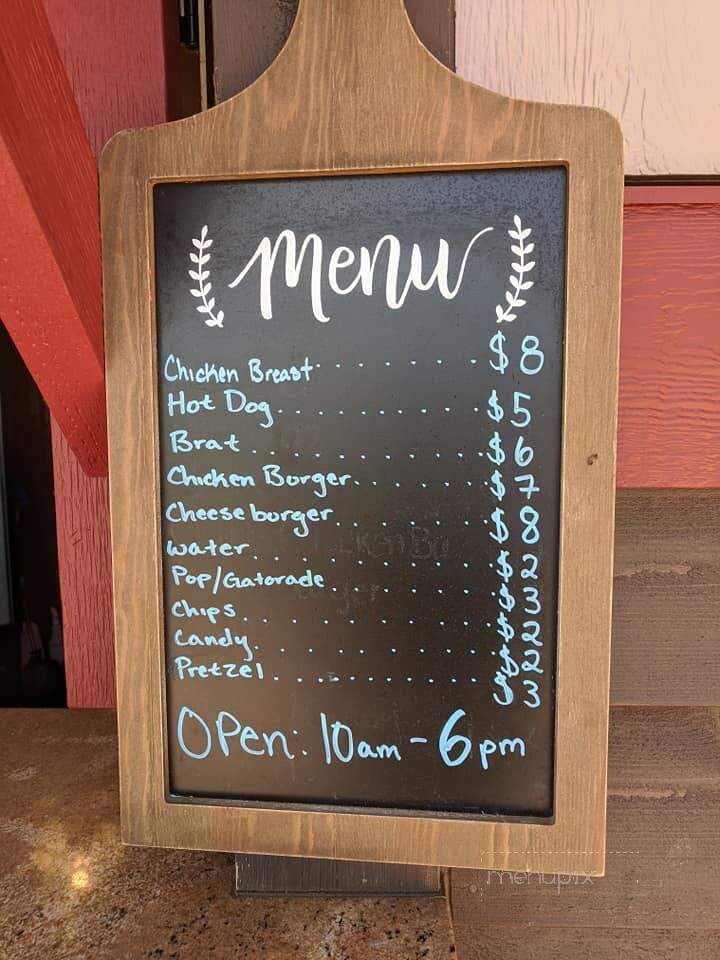 menu
Chicken Breast . . . . . . . . . . $ 8
Hot Dog . . . . . . . . . . $ 5
Brat . . . . . . . . . . $ 6
Chicken Borger . . . . . . . . $ 7
Cheeseburger . . . . . . . . $ 8
water . . . . . . . . . . $ 2
Pop/Gatorade . . . . . . . . $ 3
Chips . . . . . . . . . . $ 2
Candy . . . . . . . . . . $ 2
Pretzel . . . . . . . . . . $ 3
OPen: 10am - 6pm
menupix